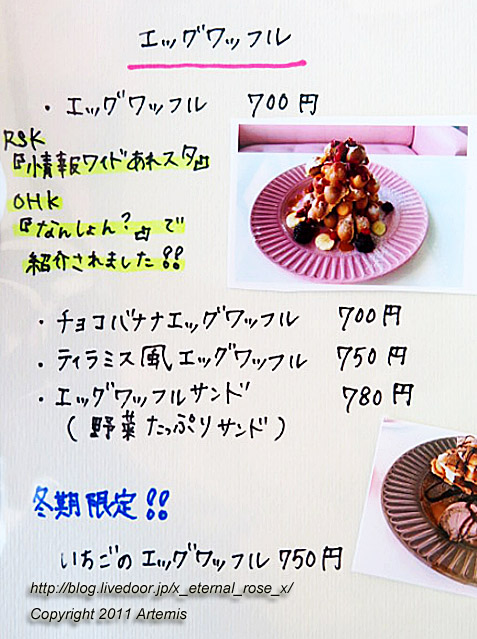 エッグワッフル
・エッグワッフル 700円
RSK
『情報ワイドあれスタ』
OHK
『なんしょん?』で
紹介されました!!
・チョコバナナエッグワッフル 700円
・ティラミス風エッグワッフル 750円
・エッグワッフルサンド 780円
(野菜たっぷりサンド)
冬期限定!!
いちごのエッグワッフル 750円
http://blog.livedoor.jp/x_eternal_rose_x/
Copyright 2011 Artemis